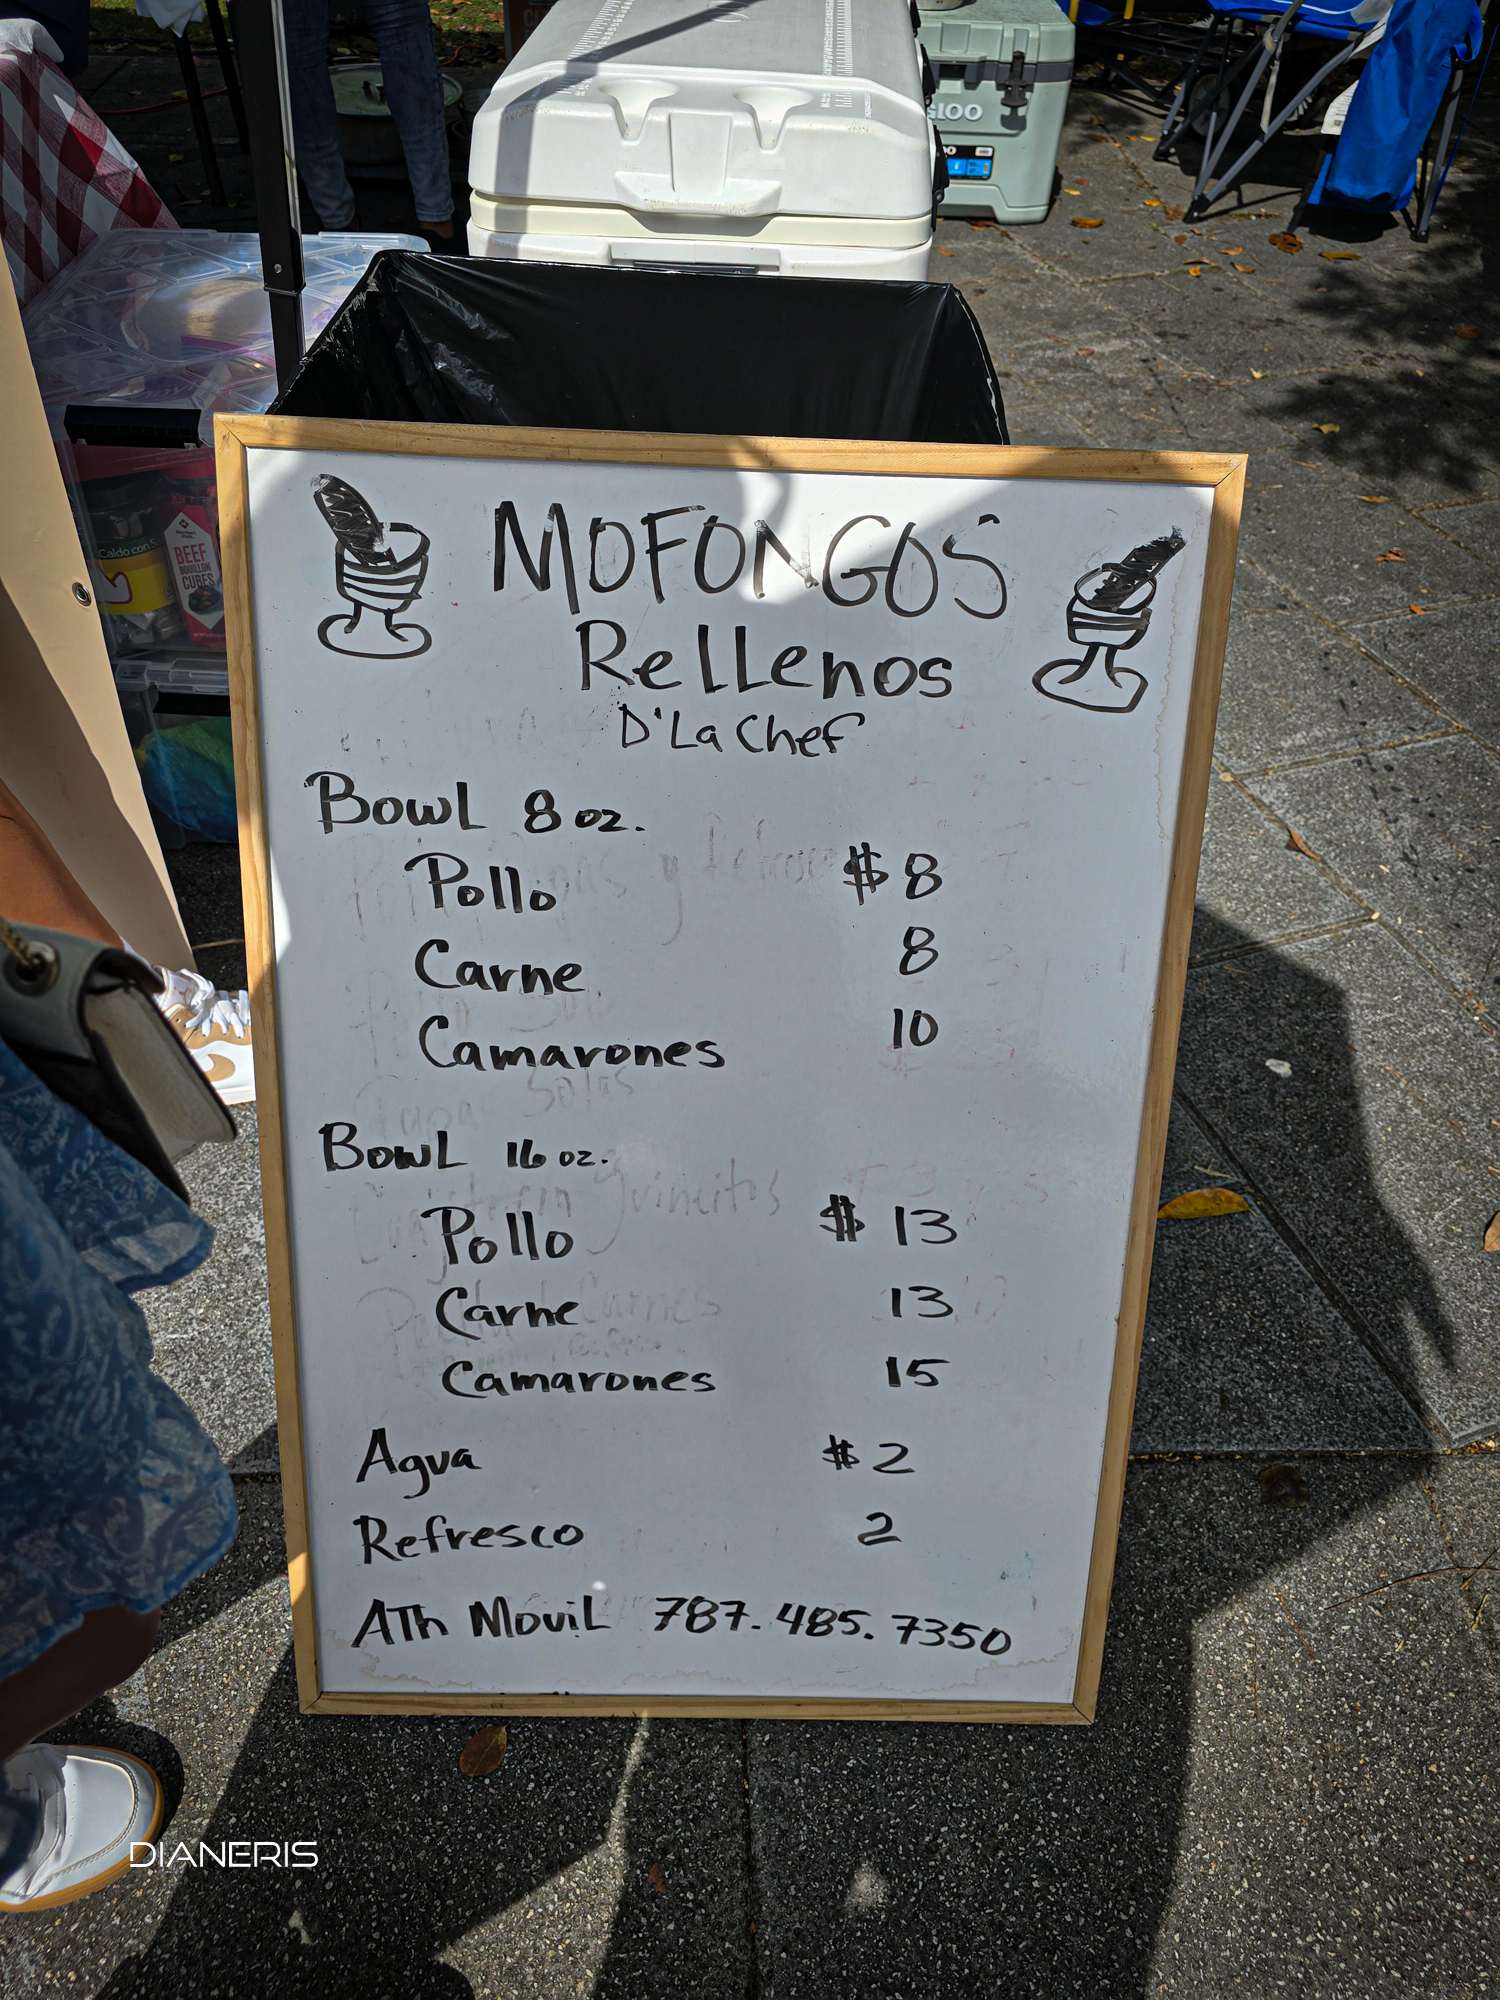 IGLOO
Caldo con
BEEF
BOUILLON
CUBES
MOFONGOS
Rellenos
D'La Chef
Bowl 8 oz.
Pollo $8
Carne 8
Camarones 10
Bowl 16 oz.
Pollo $13
Carne 13
Camarones 15
Agua $2
Refresco 2
ATh Movil 787.485.7350
DIANERIS